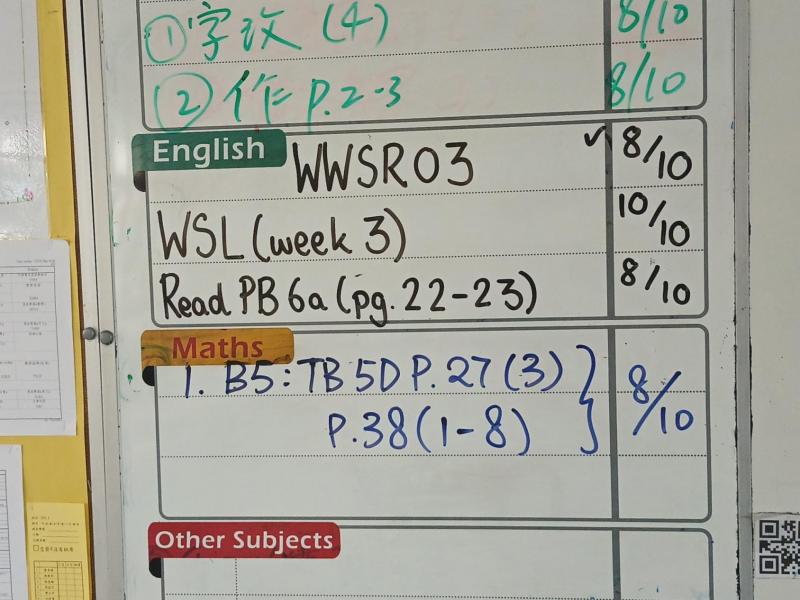 ① 字玫 (4) 8/10
② 作 P.2-3 8/10
English WWSR03 ✓ 8/10
WSL (week 3) 10/10
Read PB 6a (pg. 22-23) 8/10
Maths
1. B5: TB 5D P. 27 (3)
P.38 (1-8) 8/10
Other Subjects